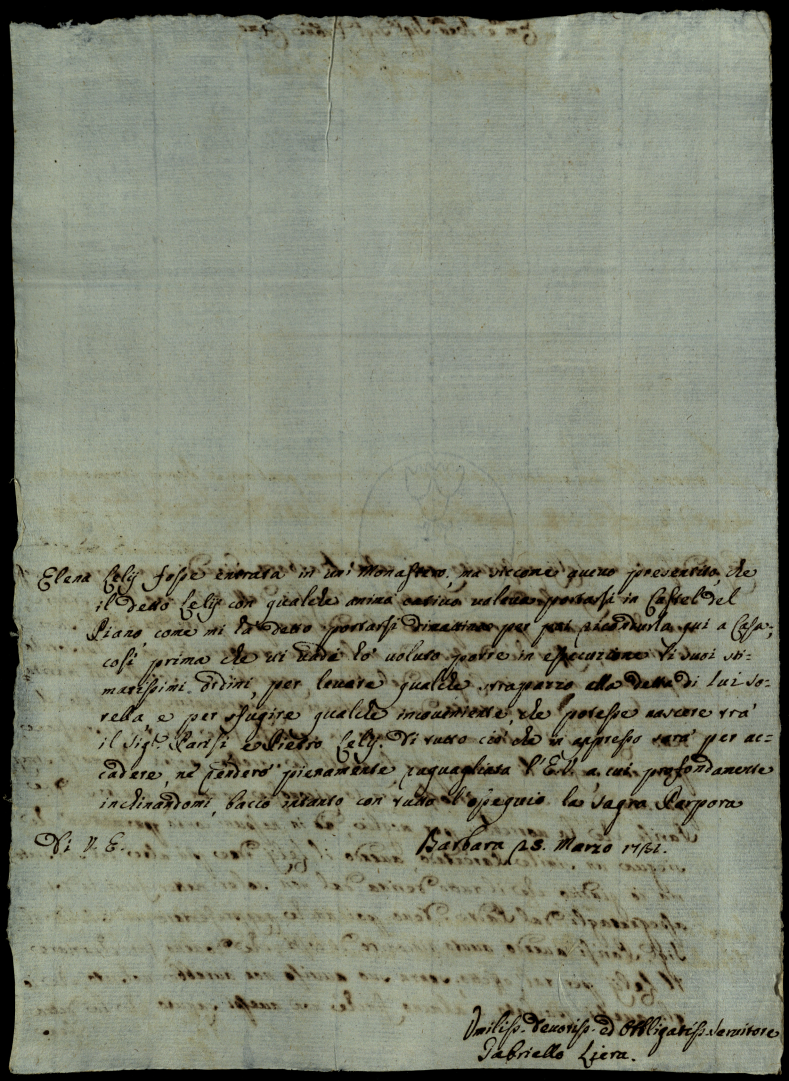 Elena Lelij fosse entrata in un' Monastero; ma siccome avevo presentito, che
il detto Lelij con qualche animo cativo voleva portarsi in Castel del
Piano, come mi hà detto portarsi dimattina per poi ricondurla qui a Casa;
così prima che vi vada hò voluto porre in esecuzione li suoi sti-
matissimi ordini, per levare qualche strapazzo alla detta di lui so-
rella e per sfugire qualche inconveniente, che potesse nascere trà
il Sig.r Parisi e Pietro Lelij. Di tutto ciò che in appresso sarà per ac-
cadere, ne renderò pienamente raguagliata l'E.V. a cui profondamente
inchinandomi, baccio intanto con tutto l'ossequio la Sagra Porpora
Di V. E.
Barbara 28. Marzo
Umiliss. Devotiss. ed Obbligatiss. Servitore
Gabriello